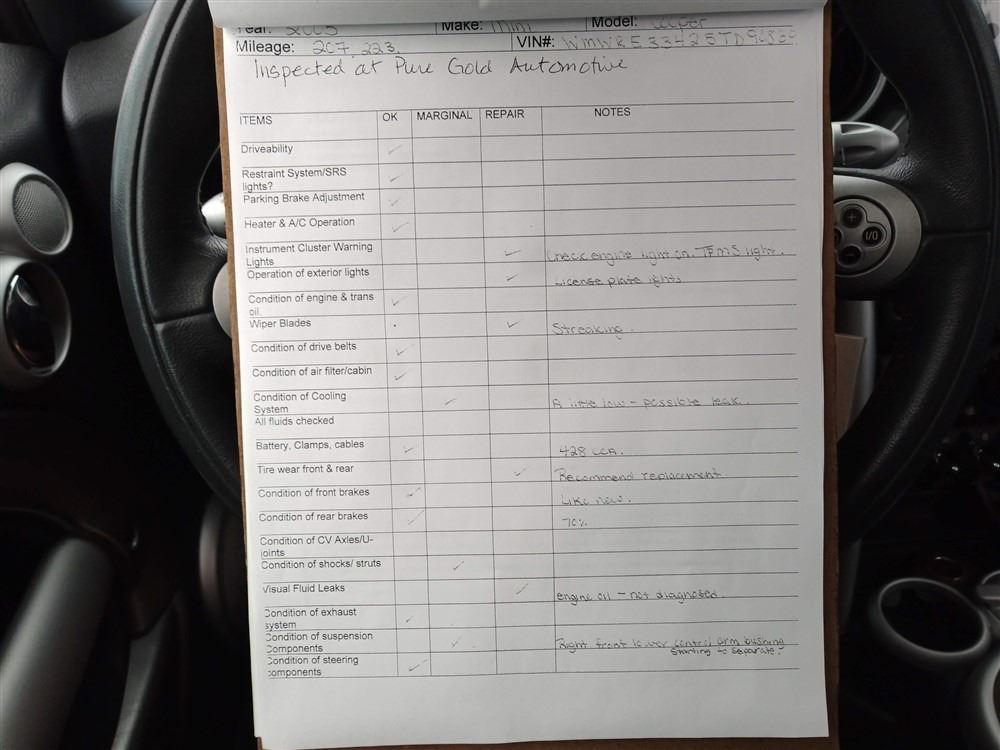 Year: 2005 Make: Mini Model:
Mileage: 207,223. VIN#:
Inspected at Pure Gold Automotive
ITEMS OK MARGINAL REPAIR NOTES
Driveability ✓
Restraint System/SRS
lights? ✓
Parking Brake Adjustment ✓
Heater & A/C Operation ✓
Instrument Cluster Warning
Lights ✓ Check engine light on. TPMS light.
Operation of exterior lights ✓ License plate lights
Condition of engine & trans
oil. ✓
Wiper Blades ✓ Streaking.
Condition of drive belts ✓
Condition of air filter/cabin ✓
Condition of Cooling
System ✓ A little low - possible leak.
All fluids checked
Battery, Clamps, cables ✓ 428 CCA.
Tire wear front & rear ✓ Recommend replacement
Condition of front brakes ✓ Like new.
Condition of rear brakes ✓ 70%
Condition of CV Axles/U-
joints
Condition of shocks/ struts ✓
Visual Fluid Leaks ✓ engine oil - not diagnosed
Condition of exhaust
system ✓
Condition of suspension
components ✓ Right front lower control arm bushing
starting to separate.
Condition of steering
components ✓
I/O